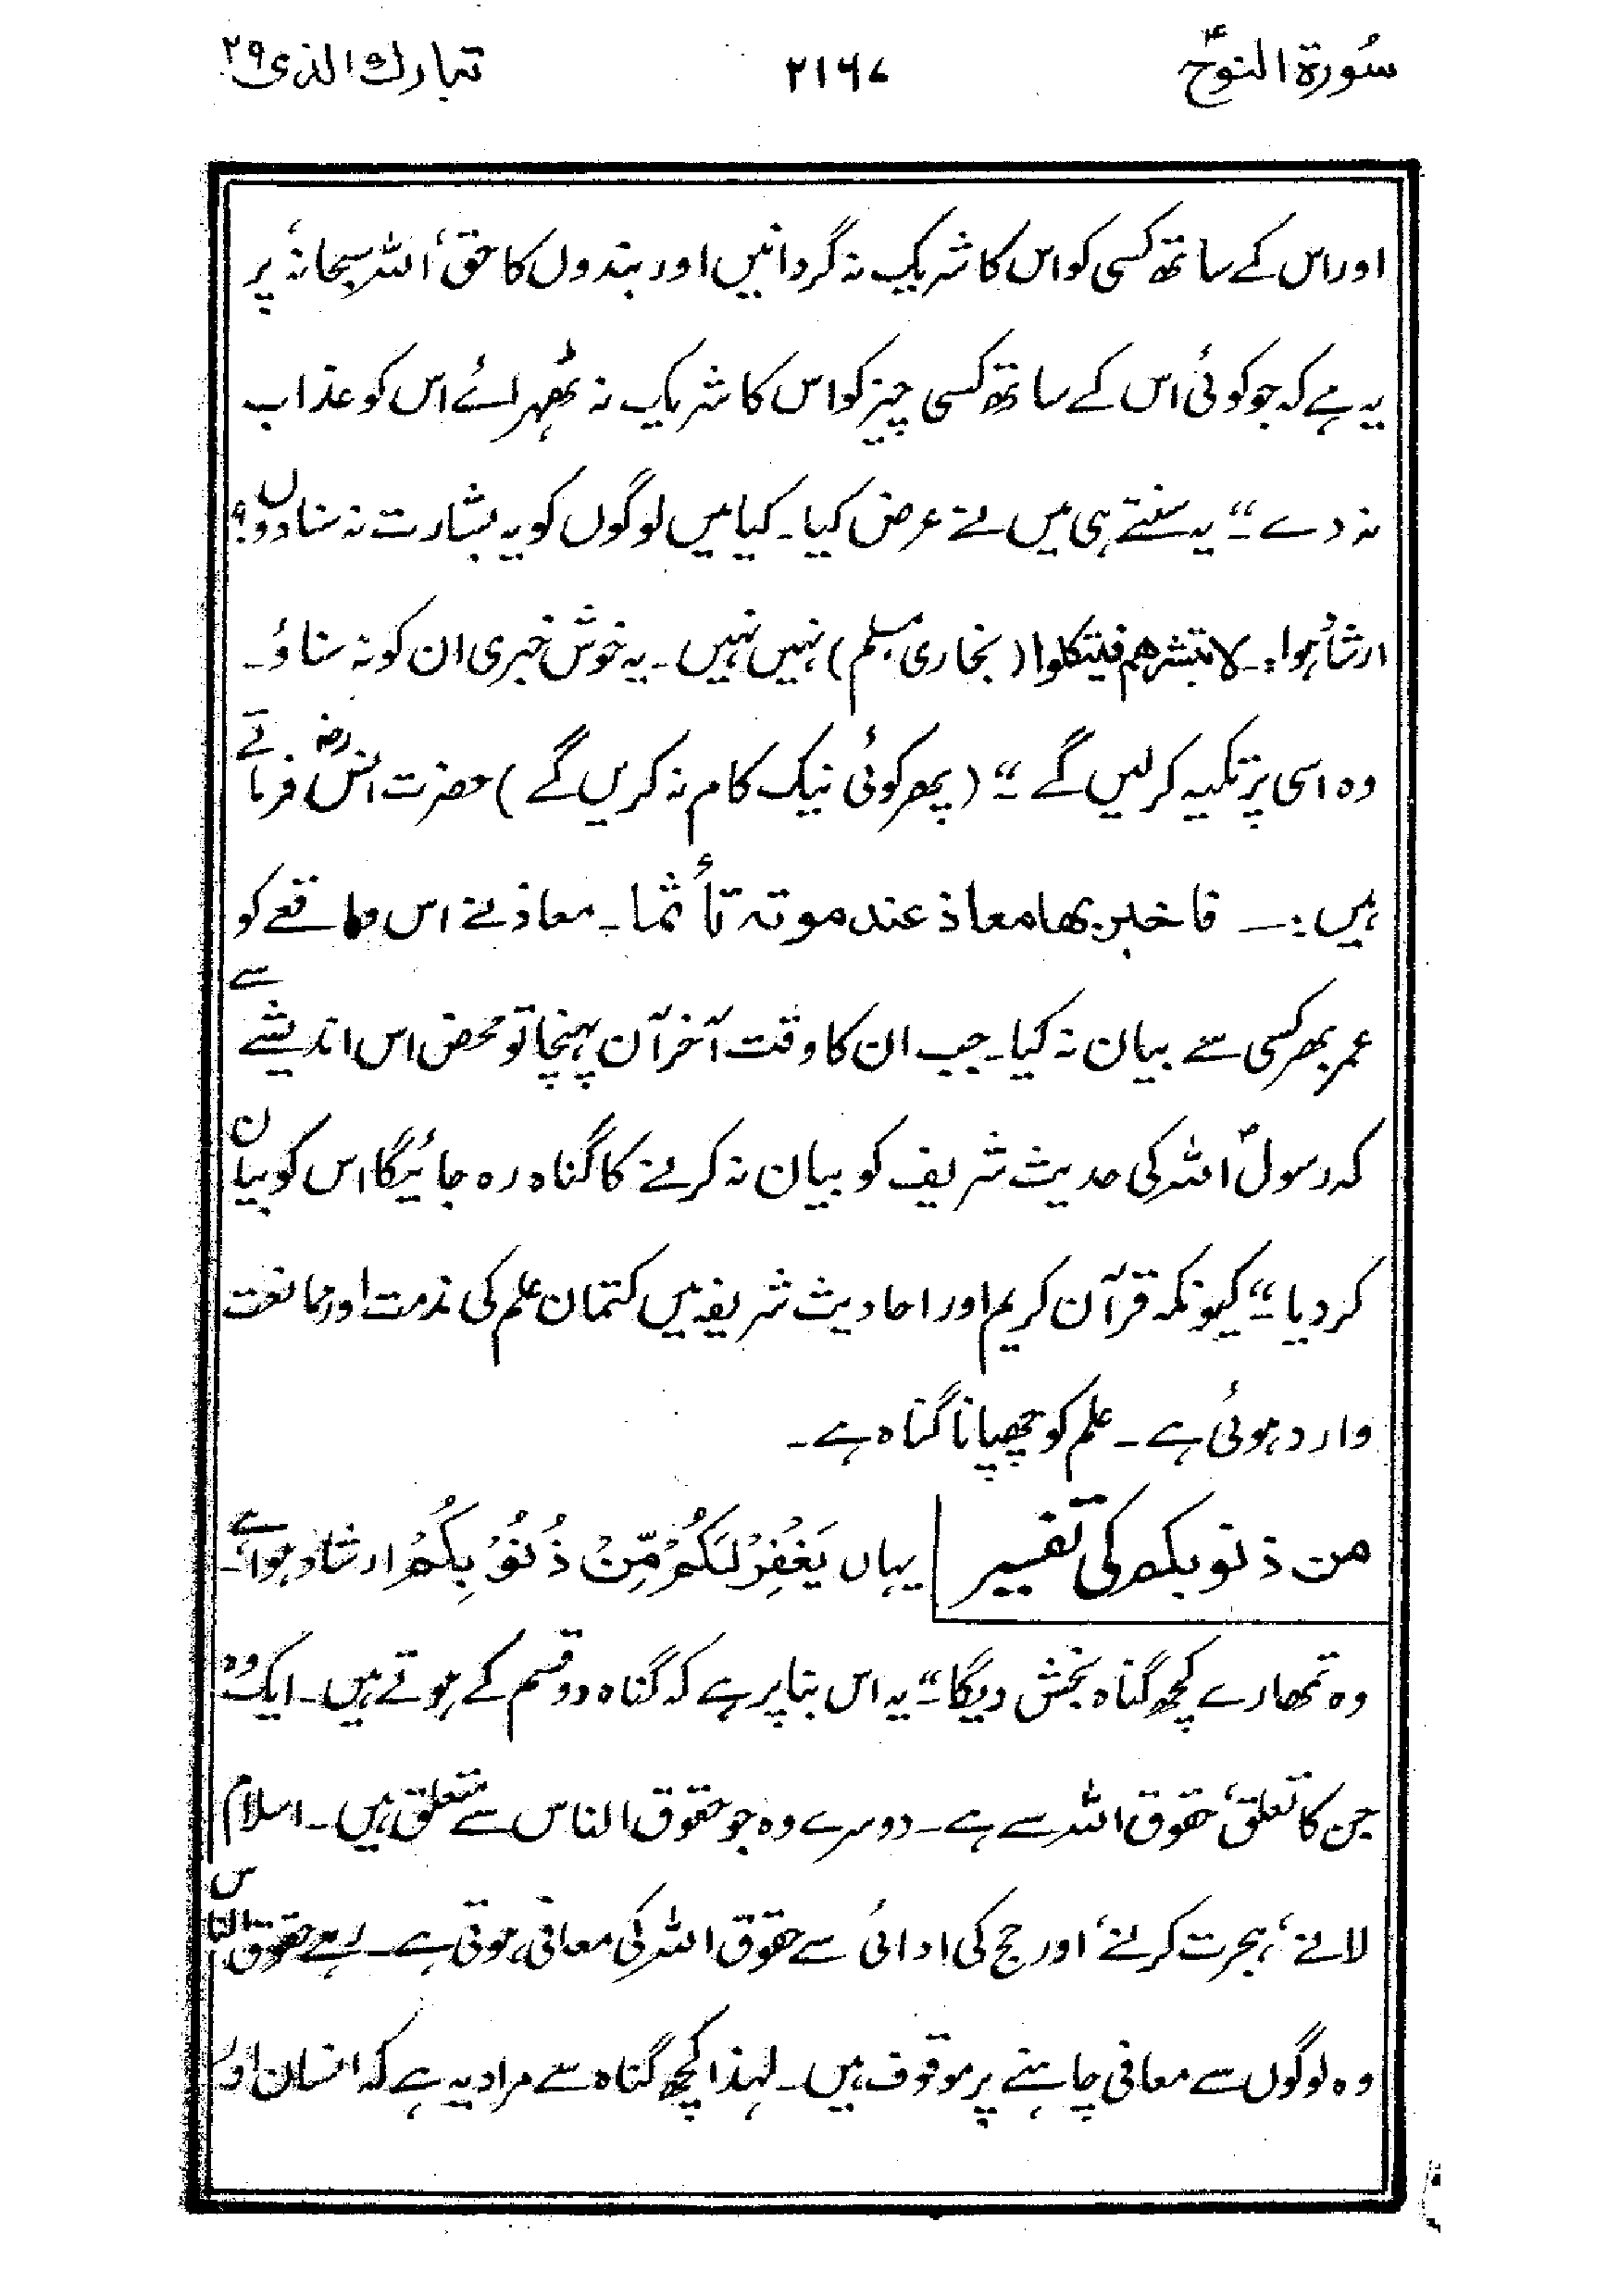 سُورۃ النوحؑ ۲۱۶۷ تبارك الذی ۲۹
اور اس کے ساتھ کسی کو اس کا شریک نہ گردانیں اور بندوں کا حق، اللہ سبحانہٗ پر
یہ ہے کہ جو کوئی اس کے ساتھ کسی چیز کو اس کا شریک نہ ٹھہرائے اس کو عذاب
نہ دے ۔“ یہ سنتے ہی میں نے عرض کیا۔ کیا میں لوگوں کو یہ بشارت نہ سنا دوں؟
ارشاد ہوا:۔ لا تبشرھم فیتکلوا (بخاری مسلم) نہیں نہیں۔ یہ خوش خبری ان کو نہ سناؤ۔
وہ اسی پر تکیہ کرلیں گے ۔“ (پھر کوئی نیک کام نہ کریں گے) حضرت انسؓ فرماتے
ہیں :۔ فاخبر بھا معاذ عند موتہ تأثما۔ معاذ نے اس واقعے کو
عمر بھر کسی سے بیان نہ کیا۔ جب ان کا وقت آخر آن پہنچا تو محض اس اندیشے سے
کہ رسولؐ اللہ کی حدیث شریف کو بیان نہ کرنے کا گناہ رہ جائیگا اس کو بیان
کر دیا ۔“ کیونکہ قرآن کریم اور احادیث شریفہ میں کتمان علم کی مذمت اور ممانعت
وارد ہوئی ہے ۔ علم کو چھپانا گناہ ہے ۔
من ذنوبکم کی تفسیر یہاں یَغْفِرْ لَکُمْ مِّنْ ذُنُوْبِکُمْ ارشاد ہوا ہے۔
وہ تمھارے کچھ گناہ بخش دیگا ۔“ یہ اس بنا پر ہے کہ گناہ دو قسم کے ہوتے ہیں ۔ ایک وہ
جن کا تعلق، حقوق اللہ سے ہے ۔ دوسرے وہ جو حقوق الناس سے متعلق ہیں ۔ اسلام
لانے، ہجرت کرنے، اور حج کی ادائی سے حقوق اللہ کی معافی ہوتی ہے ۔ رہے حقوق الناس
وہ لوگوں سے معافی چاہنے پر موقوف ہیں ۔ لہذا کچھ گناہ سے مراد یہ ہے کہ انسان اور